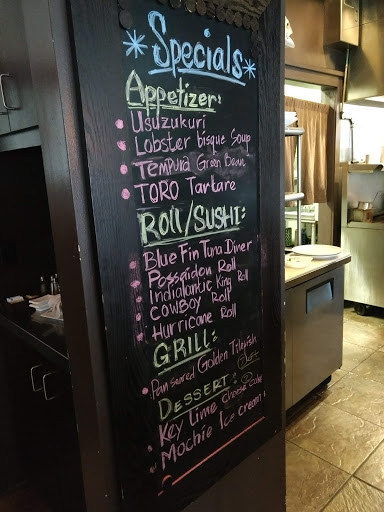 Specials
Appetizer:
Usuzukuri
Lobster bisque Soup
Tempura Green Bean
TORO Tartare
ROLL/SUSHI:
Blue Fin Tuna Diner
Posseidon Roll
Indialantic King Roll
COWBOY Roll
Hurricane Roll
GRILL:
Pan seared Golden Tilefish
DESSERT:
Key Lime Cheese Cake
Mochie Ice cream